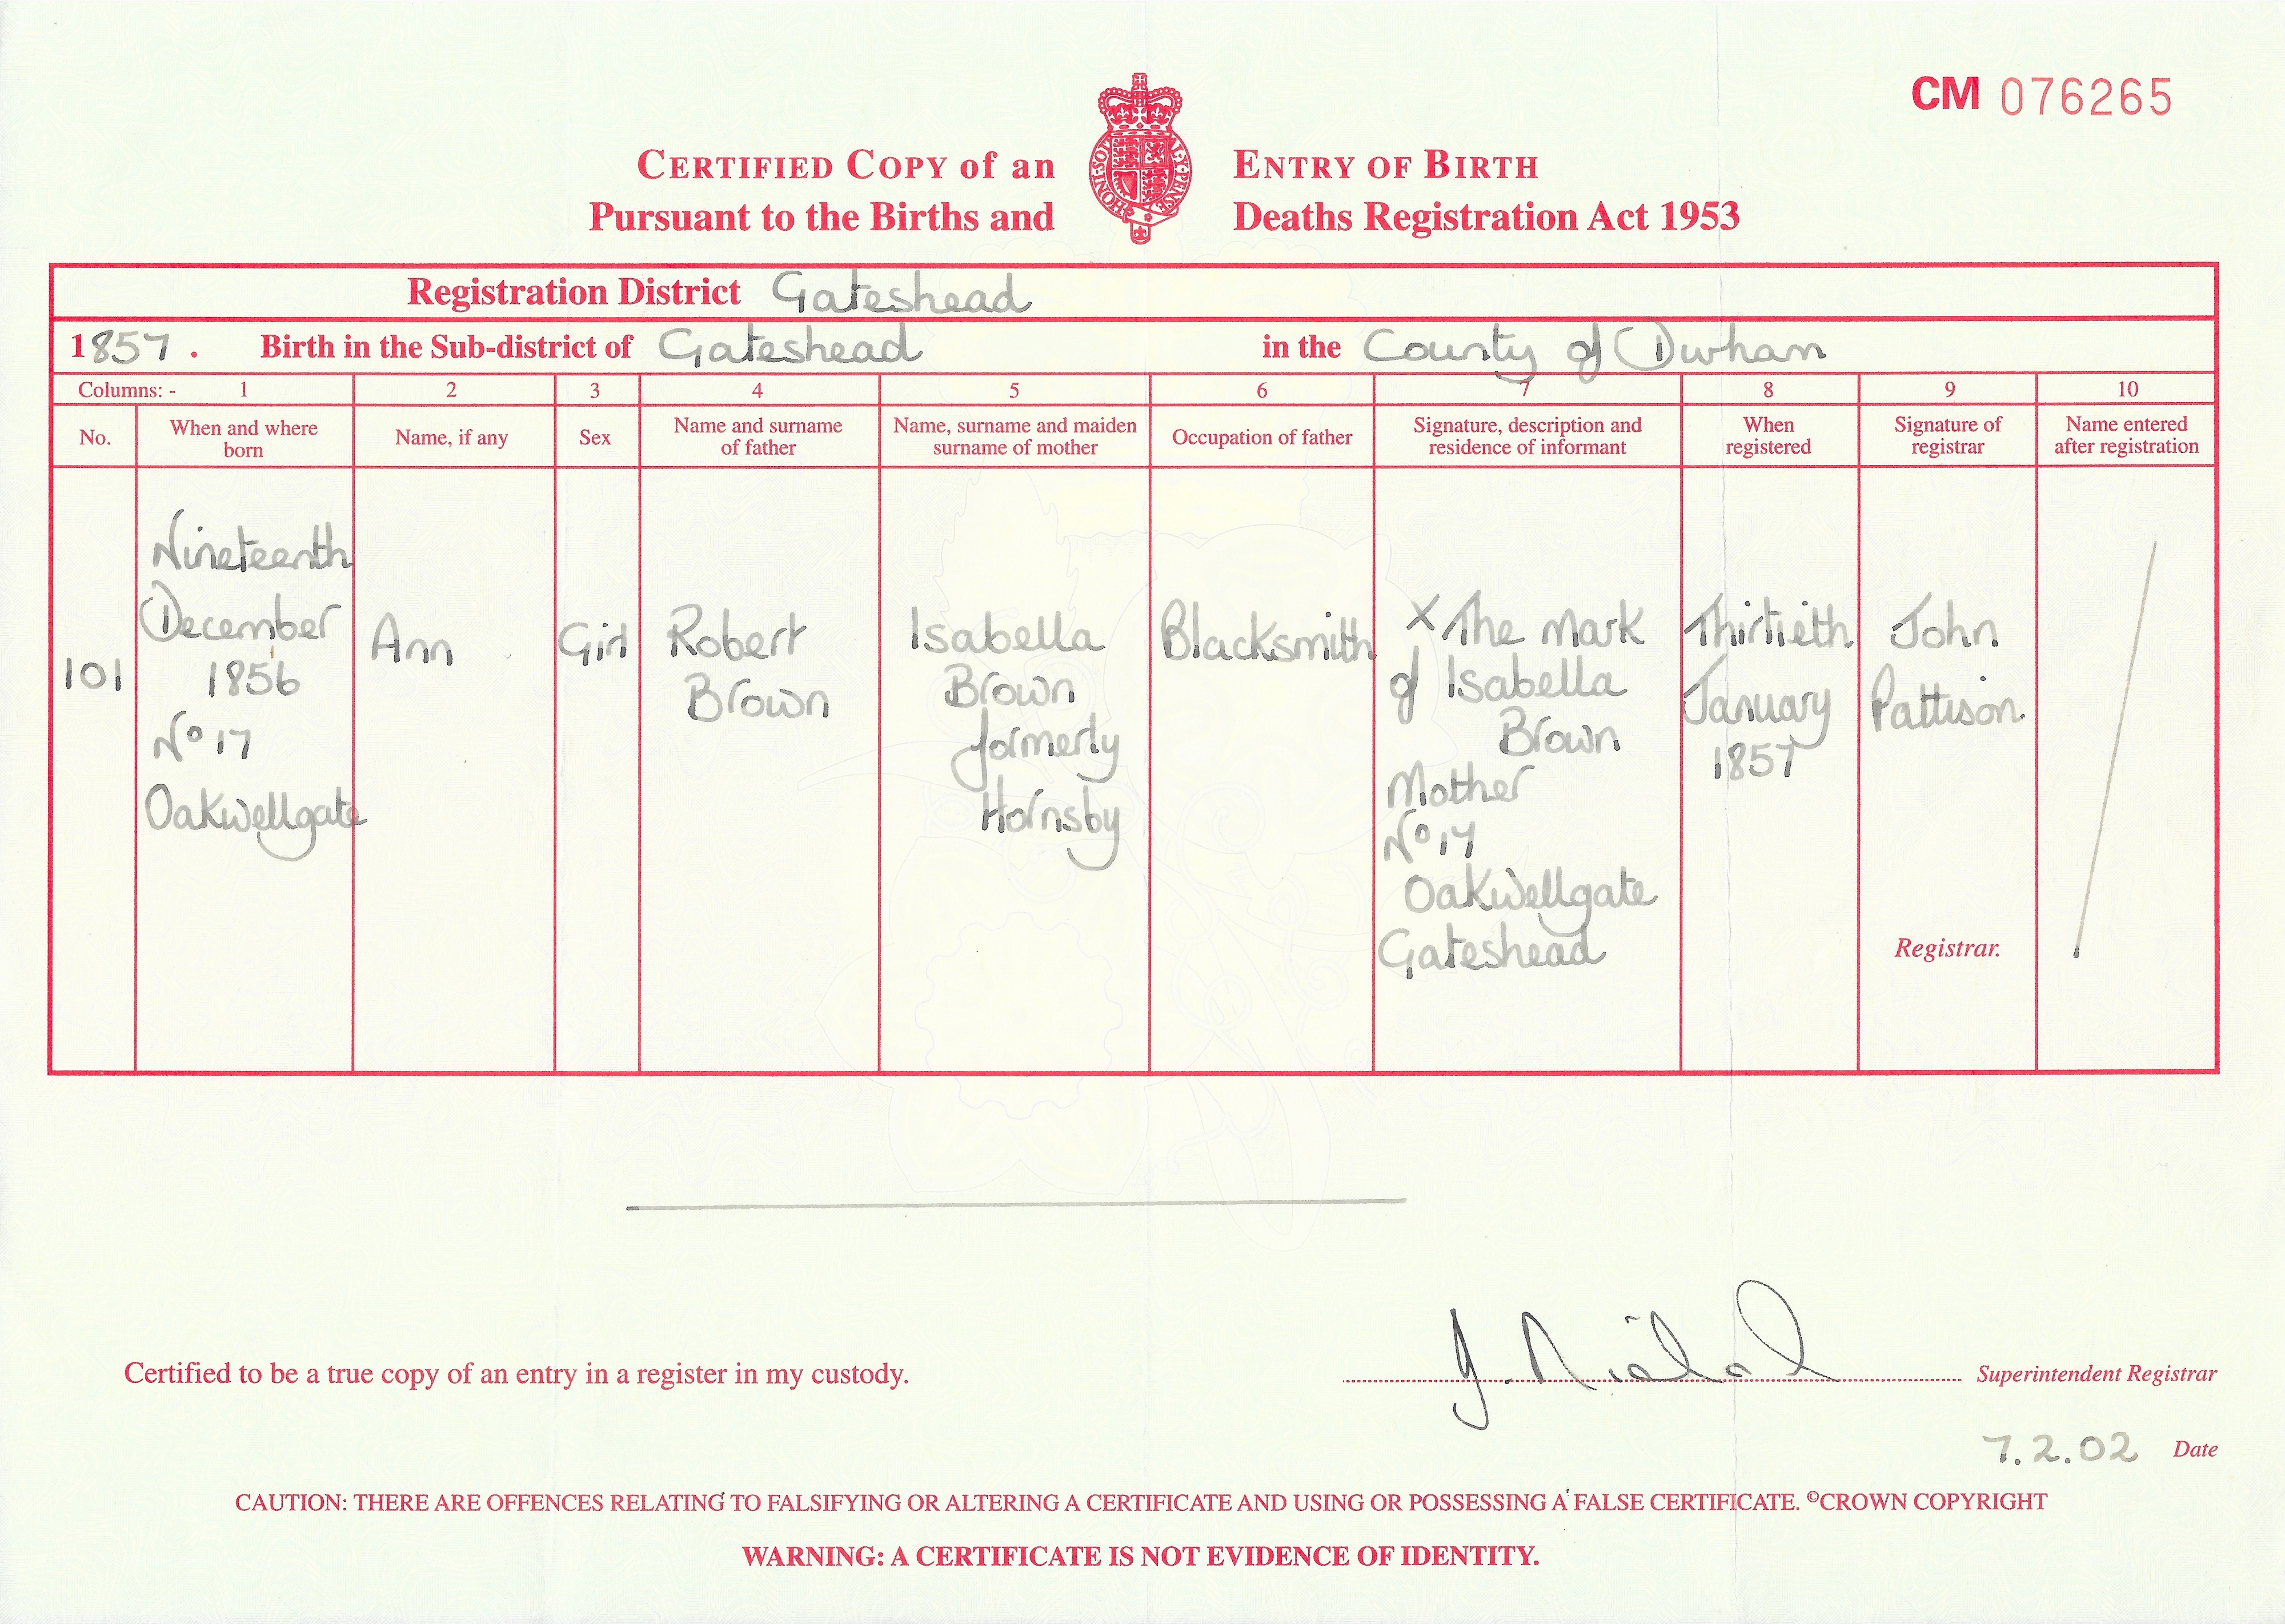 CM 076265
CERTIFIED COPY of an ENTRY OF BIRTH
Pursuant to the Births and Deaths Registration Act 1953
HONI·SOI AL·Y·PENSE
Registration District Gateshead
1857. Birth in the Sub-district of Gateshead in the County of Durham
Columns: - 1 2 3 4 5 6 7 8 9 10
No.
When and where
born
Name, if any
Sex
Name and surname
of father
Name, surname and maiden
surname of mother
Occupation of father
Signature, description and
residence of informant
When
registered
Signature of
registrar
Name entered
after registration
101
Nineteenth
December
1856
Nº 17
Oakwellgate
Ann
Girl
Robert
Brown
Isabella
Brown
formerly
Hornsby
Blacksmith
X The mark
of Isabella
Brown
Mother
Nº 17
Oakwellgate
Gateshead
Thirtieth
January
1857
John
Pattison
Registrar.
Certified to be a true copy of an entry in a register in my custody.
J. Superintendent Registrar
7.2.02 Date
CAUTION: THERE ARE OFFENCES RELATING TO FALSIFYING OR ALTERING A CERTIFICATE AND USING OR POSSESSING A FALSE CERTIFICATE. ©CROWN COPYRIGHT
WARNING: A CERTIFICATE IS NOT EVIDENCE OF IDENTITY.